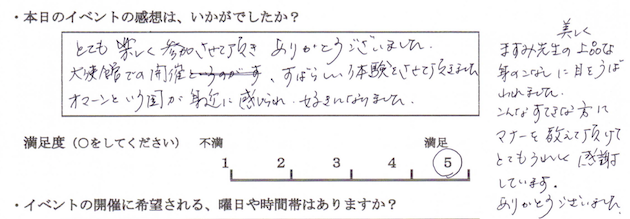 ・本日のイベントの感想は、いかがでしたか？
とても楽しく参加させて頂き ありがとうございました。
大使館での開催というのがす、すばらしい体験とさせて頂きました
オマーンという国が身近に感じられ 好きになりました。
満足度（○をしてください） 不満 満足
1 2 3 4 5
・イベントの開催に希望される、曜日や時間帯はありますか？
美しく
ますみ先生の上品な
身のこなしに目をうば
われました。
こんなすてきな方に
マナーを教えて頂けて
とてもうれしく感謝
しています。
ありがとうございました。